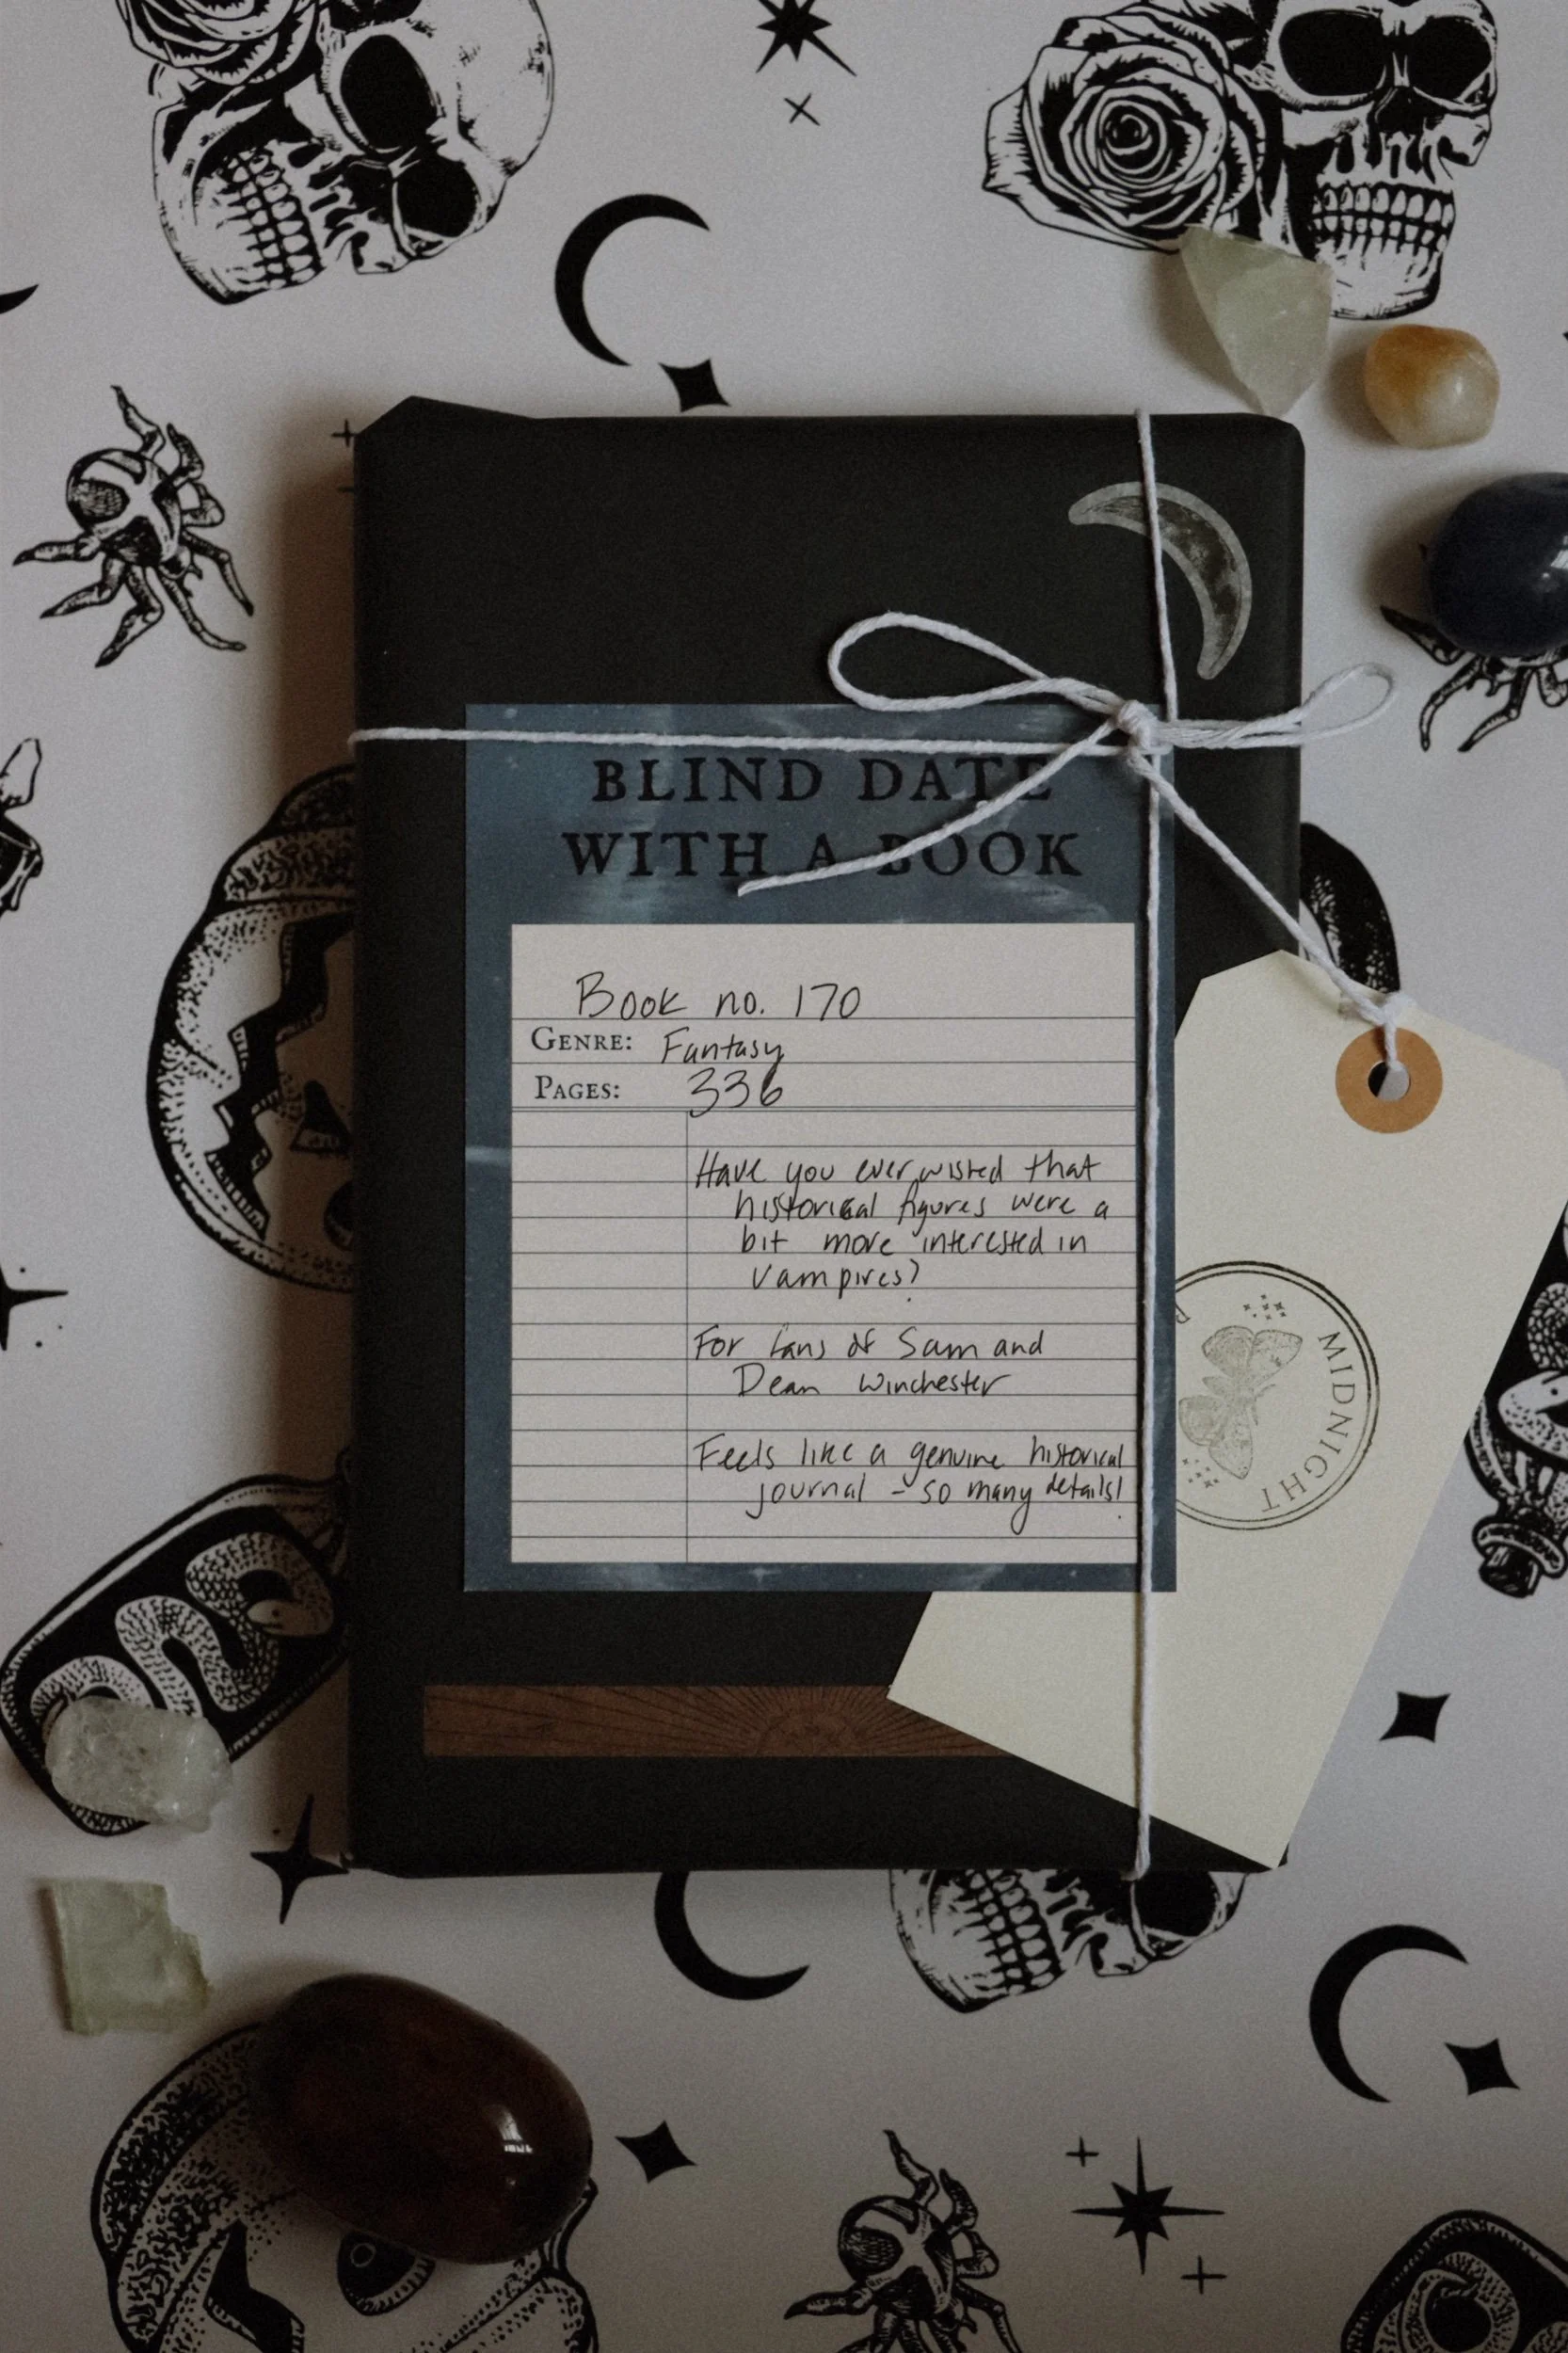 BLIND DATE
WITH A BOOK
Book no. 170
GENRE: Fantasy
PAGES: 336
Have you ever wished that
historical figures were a
bit more interested in
vampires?
For fans of Sam and
Dean Winchester
Feels like a genuine historical
journal - so many details!
MIDNIGHT